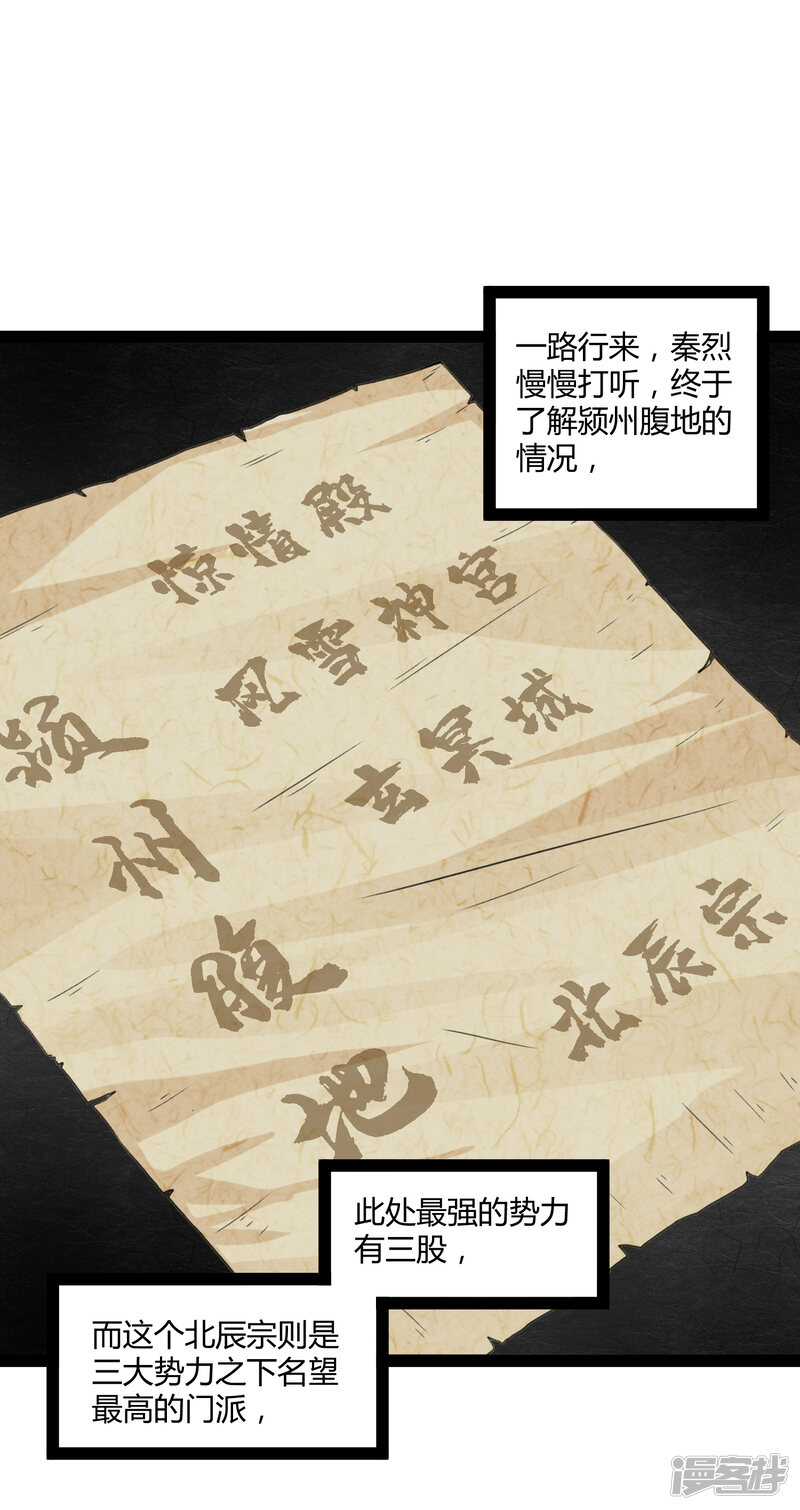 一路行来，秦烈
慢慢打听，终于
了解颍州腹地的
情况，
惊情殿
风雪神宫
玄冥城
颍州腹地
北辰宗
此处最强的势力
有三股，
而这个北辰宗则是
三大势力之下名望
最高的门派，
漫客栈